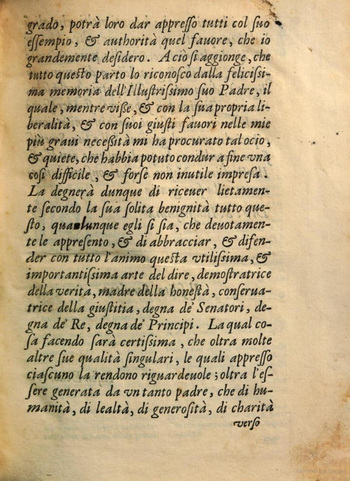 grado, potrà loro dar appresso tutti col suo
essempio, & authorità quel fauore, che io
grandemente desidero. A ciò si aggionge, che
tutto questo parto lo riconosco dalla felicissi-
ma memoria dell'Illustrissimo suo Padre, il
quale, mentre visse, & con la sua propria li-
beralità, & con suoi giusti fauori nelle mie
più graui necessità mi ha procurato tal ocio,
& quiete, che habbia potuto condur a fine vna
così difficile, & forse non inutile impresa.
La degnerà dunque di riceuer lietamen-
te secondo la sua solita benignità tutto que-
sto, qualunque egli si sia, che deuotamen-
te le appresento, & di abbracciar, & difen-
der con tutto l'animo questa vtilissima, &
importantissima arte del dire, demostratrice
della verità, madre della honestà, conserua-
trice della giustitia, degna de' Senatori, de-
gna de' Re, degna de' Principi. La qual co-
sa facendo sarà certissima, che oltra molte
altre sue qualità singulari, le quali appresso
ciascuno la rendono riguardeuole; oltra l'es-
sere generata da vn tanto padre, che di hu-
manità, di lealtà, di generosità, di charità
verso